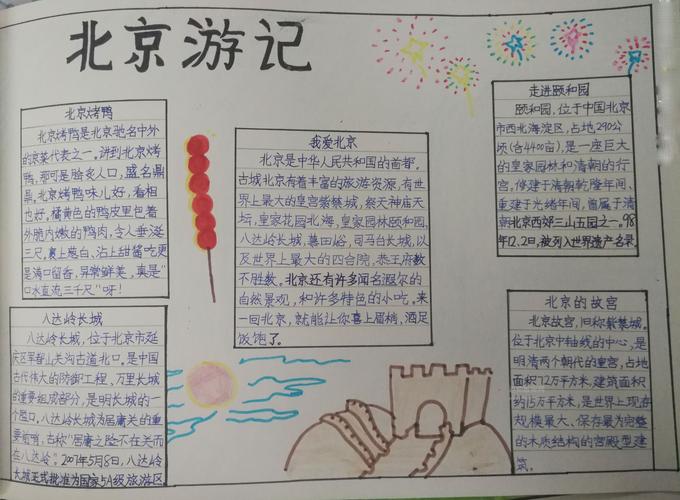 北京游记
北京烤鸭
北京烤鸭是北京驰名中外
的京菜代表之一。讲到北京烤
鸭,那可是脍炙人口,盛名鼎
鼎。北京烤鸭味儿好,看相
也好,橘黄色的鸭皮里包着
外脆内嫩的鸭肉,令人垂涎
三尺。裹上葱白、沾上甜酱吃更
是满口留香,异常鲜美,真是"
口水直流三千尺"呀!
八达岭长城
八达岭长城,位于北京市延
庆区军都山关沟古道北口。是中国
古代伟大的防御工程,万里长城
的重要组成部分,是明长城的一
个隘口。八达岭长城为居庸关的重
要前哨,古称"居庸之险不在关而
在八达岭。2007年5月8日,八达岭
长城正式批准为国家5A级旅游区
我爱北京
北京是中华人民共和国的首都。
古城北京有着丰富的旅游资源,有世
界上最大的皇宫紫禁城,祭天神庙天
坛,皇家花园北海,皇家园林颐和园,
八达岭长城、慕田峪、司马台长城,以
及世界上最大的四合院,恭王府数
不胜数。北京还有许多闻名遐尔的
自然景观,和许多特色的小吃。来
一回北京,就能让你喜上眉梢、酒足
饭饱了。
走进颐和园
颐和园,位于中国北京
市西北海淀区,占地290公
顷(合4400亩),是一座巨大
的皇家园林和清朝的行
宫,修建于清朝乾隆年间、
重建于光绪年间,曾属于清朝
北京西郊三山五园之一。98
年12.2日,被列入世界遗产名录。
北京的故宫
北京故宫,旧称紫禁城。
位于北京中轴线的中心,是
明清两个朝代的皇宫,占地
面积72万平方米,建筑面积
约15万平方米,是世界上现存
规模最大、保存最为完整
的木质结构的宫殿型建
筑。